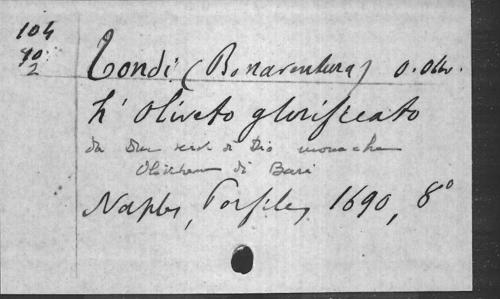 104
90
2
Tondi (Bonaventura) O. Oliv.
L'Oliveto glorificato
da due servi di Dio monache
Olivetane di Bari
Naples, 1690, 8°